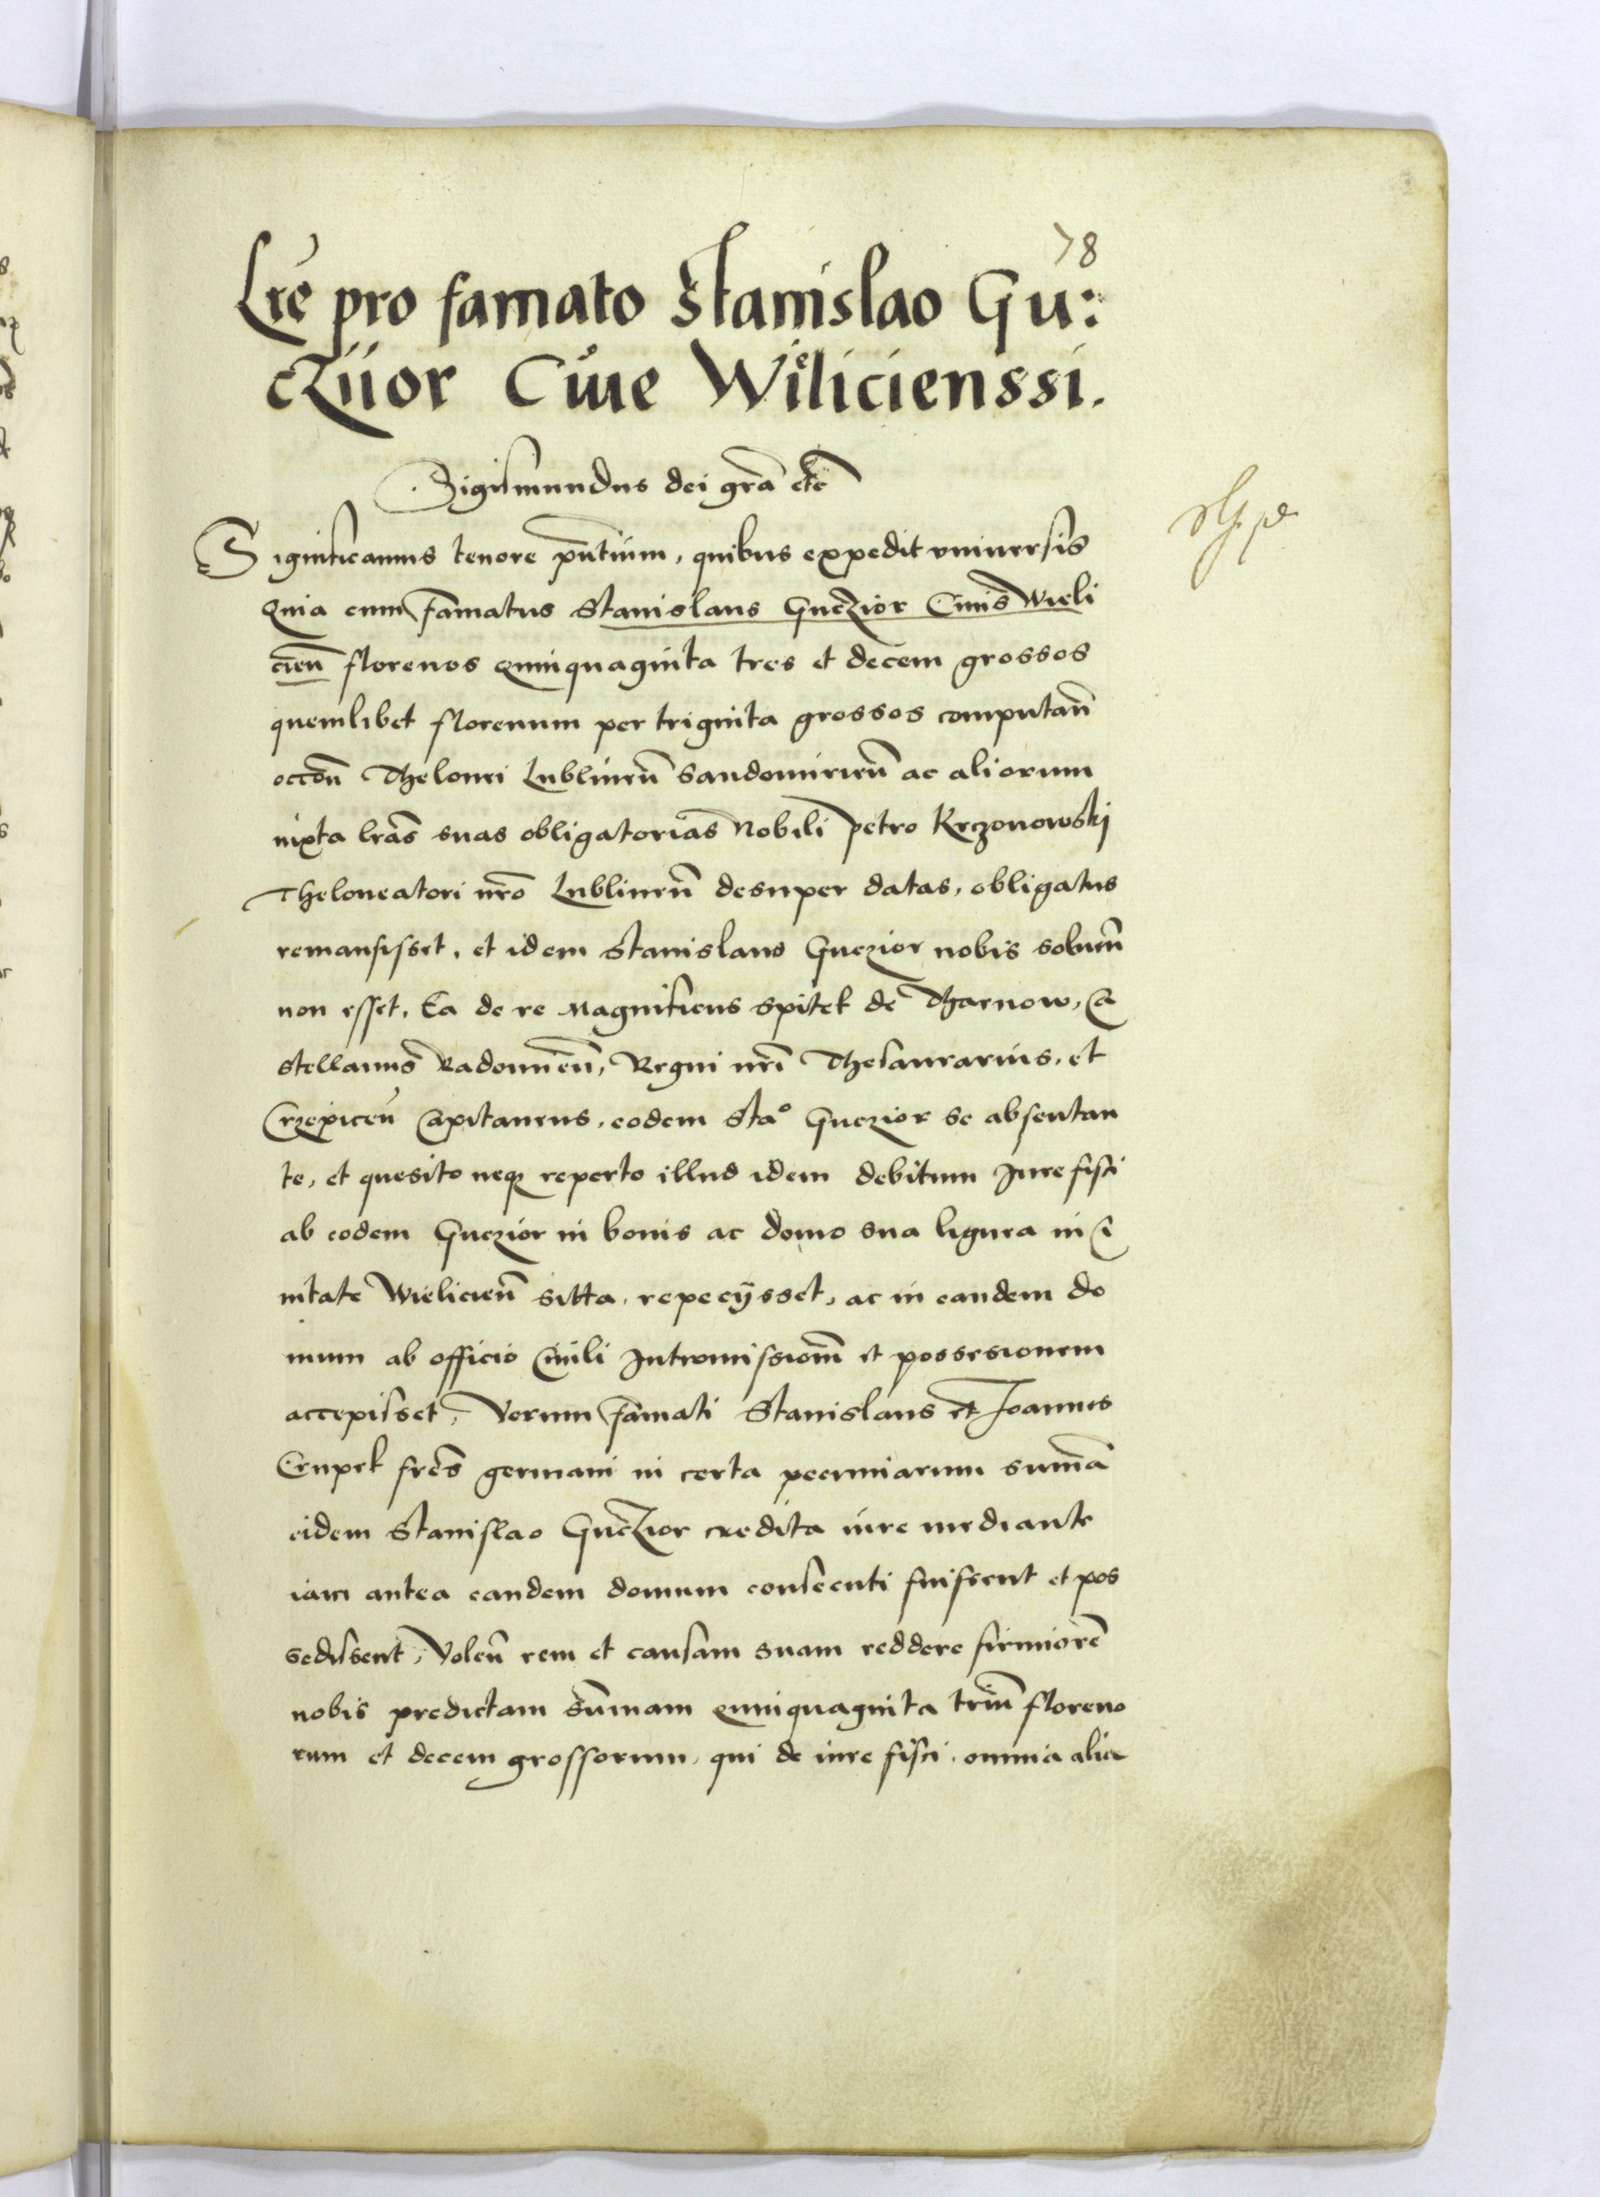 78
Lre pro famato Stanislao Gu:
cziior Ciue Wielicienssi.
Sigismundus dei gra etc
Significamus tenore pntium, quibus expedit vniuersis
Quia cum famatus Stanislaus Guczior Ciuis Wieli
cien florenos quinquaginta tres et decem grossos
quemlibet florenum per triginta grossos computan
occon Thelonei Lublinen Sandomirien ac aliorum
iuxta lras suas obligatorias Nobili Petro Krczonowskj
Theloneatori nro Lublinen desuper datas, obligatus
remansisset, et idem Stanislaus Guczior nobis soluen
non esset, Ea de re Magnificus Spitek de Tharnow, Ca
stellanus Radomien, Regni nri Thesaurarius, et
Crzepicen Capitaneus, eodem Stao Guczior se absentan
te, et quesito neque reperto illud idem debitum Jure fisci
ab eodem Guczior in bonis ac domo sua lignea in Ci
uitate Wielicien sitta, repecijsset, ac in eandem do
mum ab officio Ciuili Intromissionem et possesionem
accepisset, Verum famati Stanislaus et Joannes
Czupek fres germani in certa pecuniarum summa
eidem Stanislao Guczior credita iure mediante
iam antea eandem domum consecuti fuissent et pos
sedissent, Volen rem et causam suam reddere firmiore
nobis predictam summam quinquaginta trium floreno
rum et decem grossorum, qui de iure fisci, omnia alia